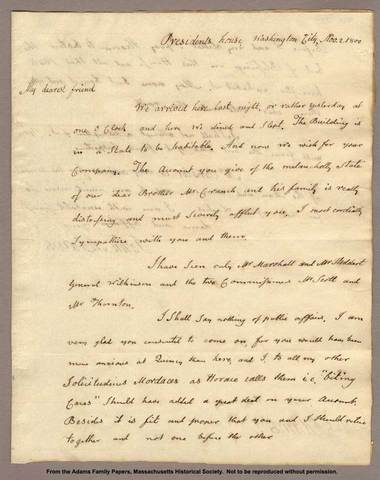 Presidents house, Washington City, Nov. 2. 1800
My dearest friend
We arrived here last night, or rather yesterday at
one o Clock and here we dined and Slept. The Building is
in a State to be habitable. And now we wish for your
Company. The Account you give of the melancholly State
of our dear Brother Mr. Cranch and his family is really
distressing and must severely afflict you. I most cordially
Sympathize with you and them.
I have Seen only Mr. Marshall and Mr. Stoddert
General Wilkinson and the two Commissioners Mr. Scott and
Mr. Thornton.
I Shall Say nothing of public affairs. I am
very glad you consented to come on, for you would have been
more anxious at Quincy than here, and I, to all my other
Solicitudines Mordaces as Horace calls them i.e. "biting
Cares" Should have added a great deal on your Account.
Besides it is fit and proper that you and I Should retire
together and not one before the other.
From the Adams Family Papers, Massachusetts Historical Society. Not to be reproduced without permission.